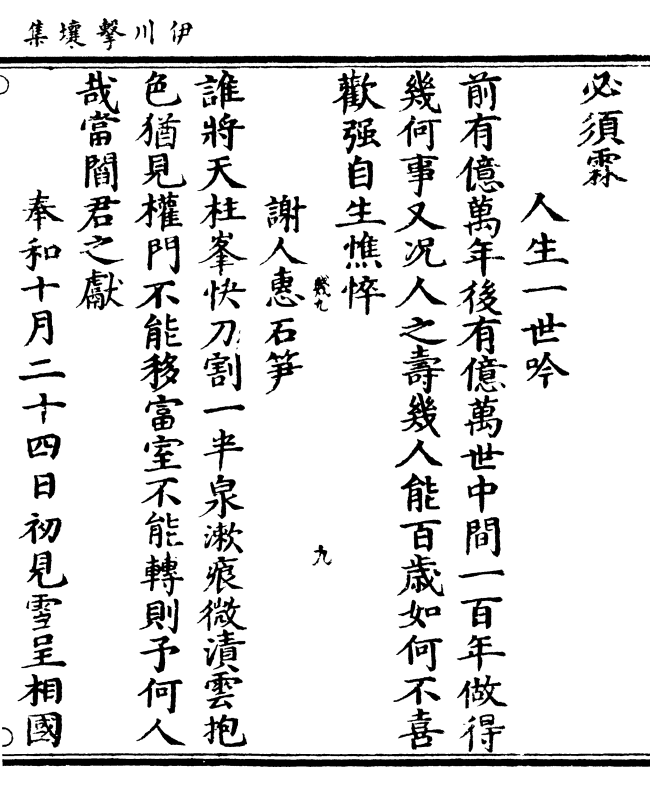 伊川擊壤集
必須霖
人生一世吟
前有億萬年後有億萬世中間一百年做得
幾何事又况人之壽幾人能百歲如何不喜
歡强自生憔悴
謝人惠石笋
誰將天柱峯快刀割一半泉漱痕微漬雲抱
色猶見權門不能移富室不能轉則予何人
哉當閻君之獻
奉和十月二十四日初見雪呈相國
幾九
九